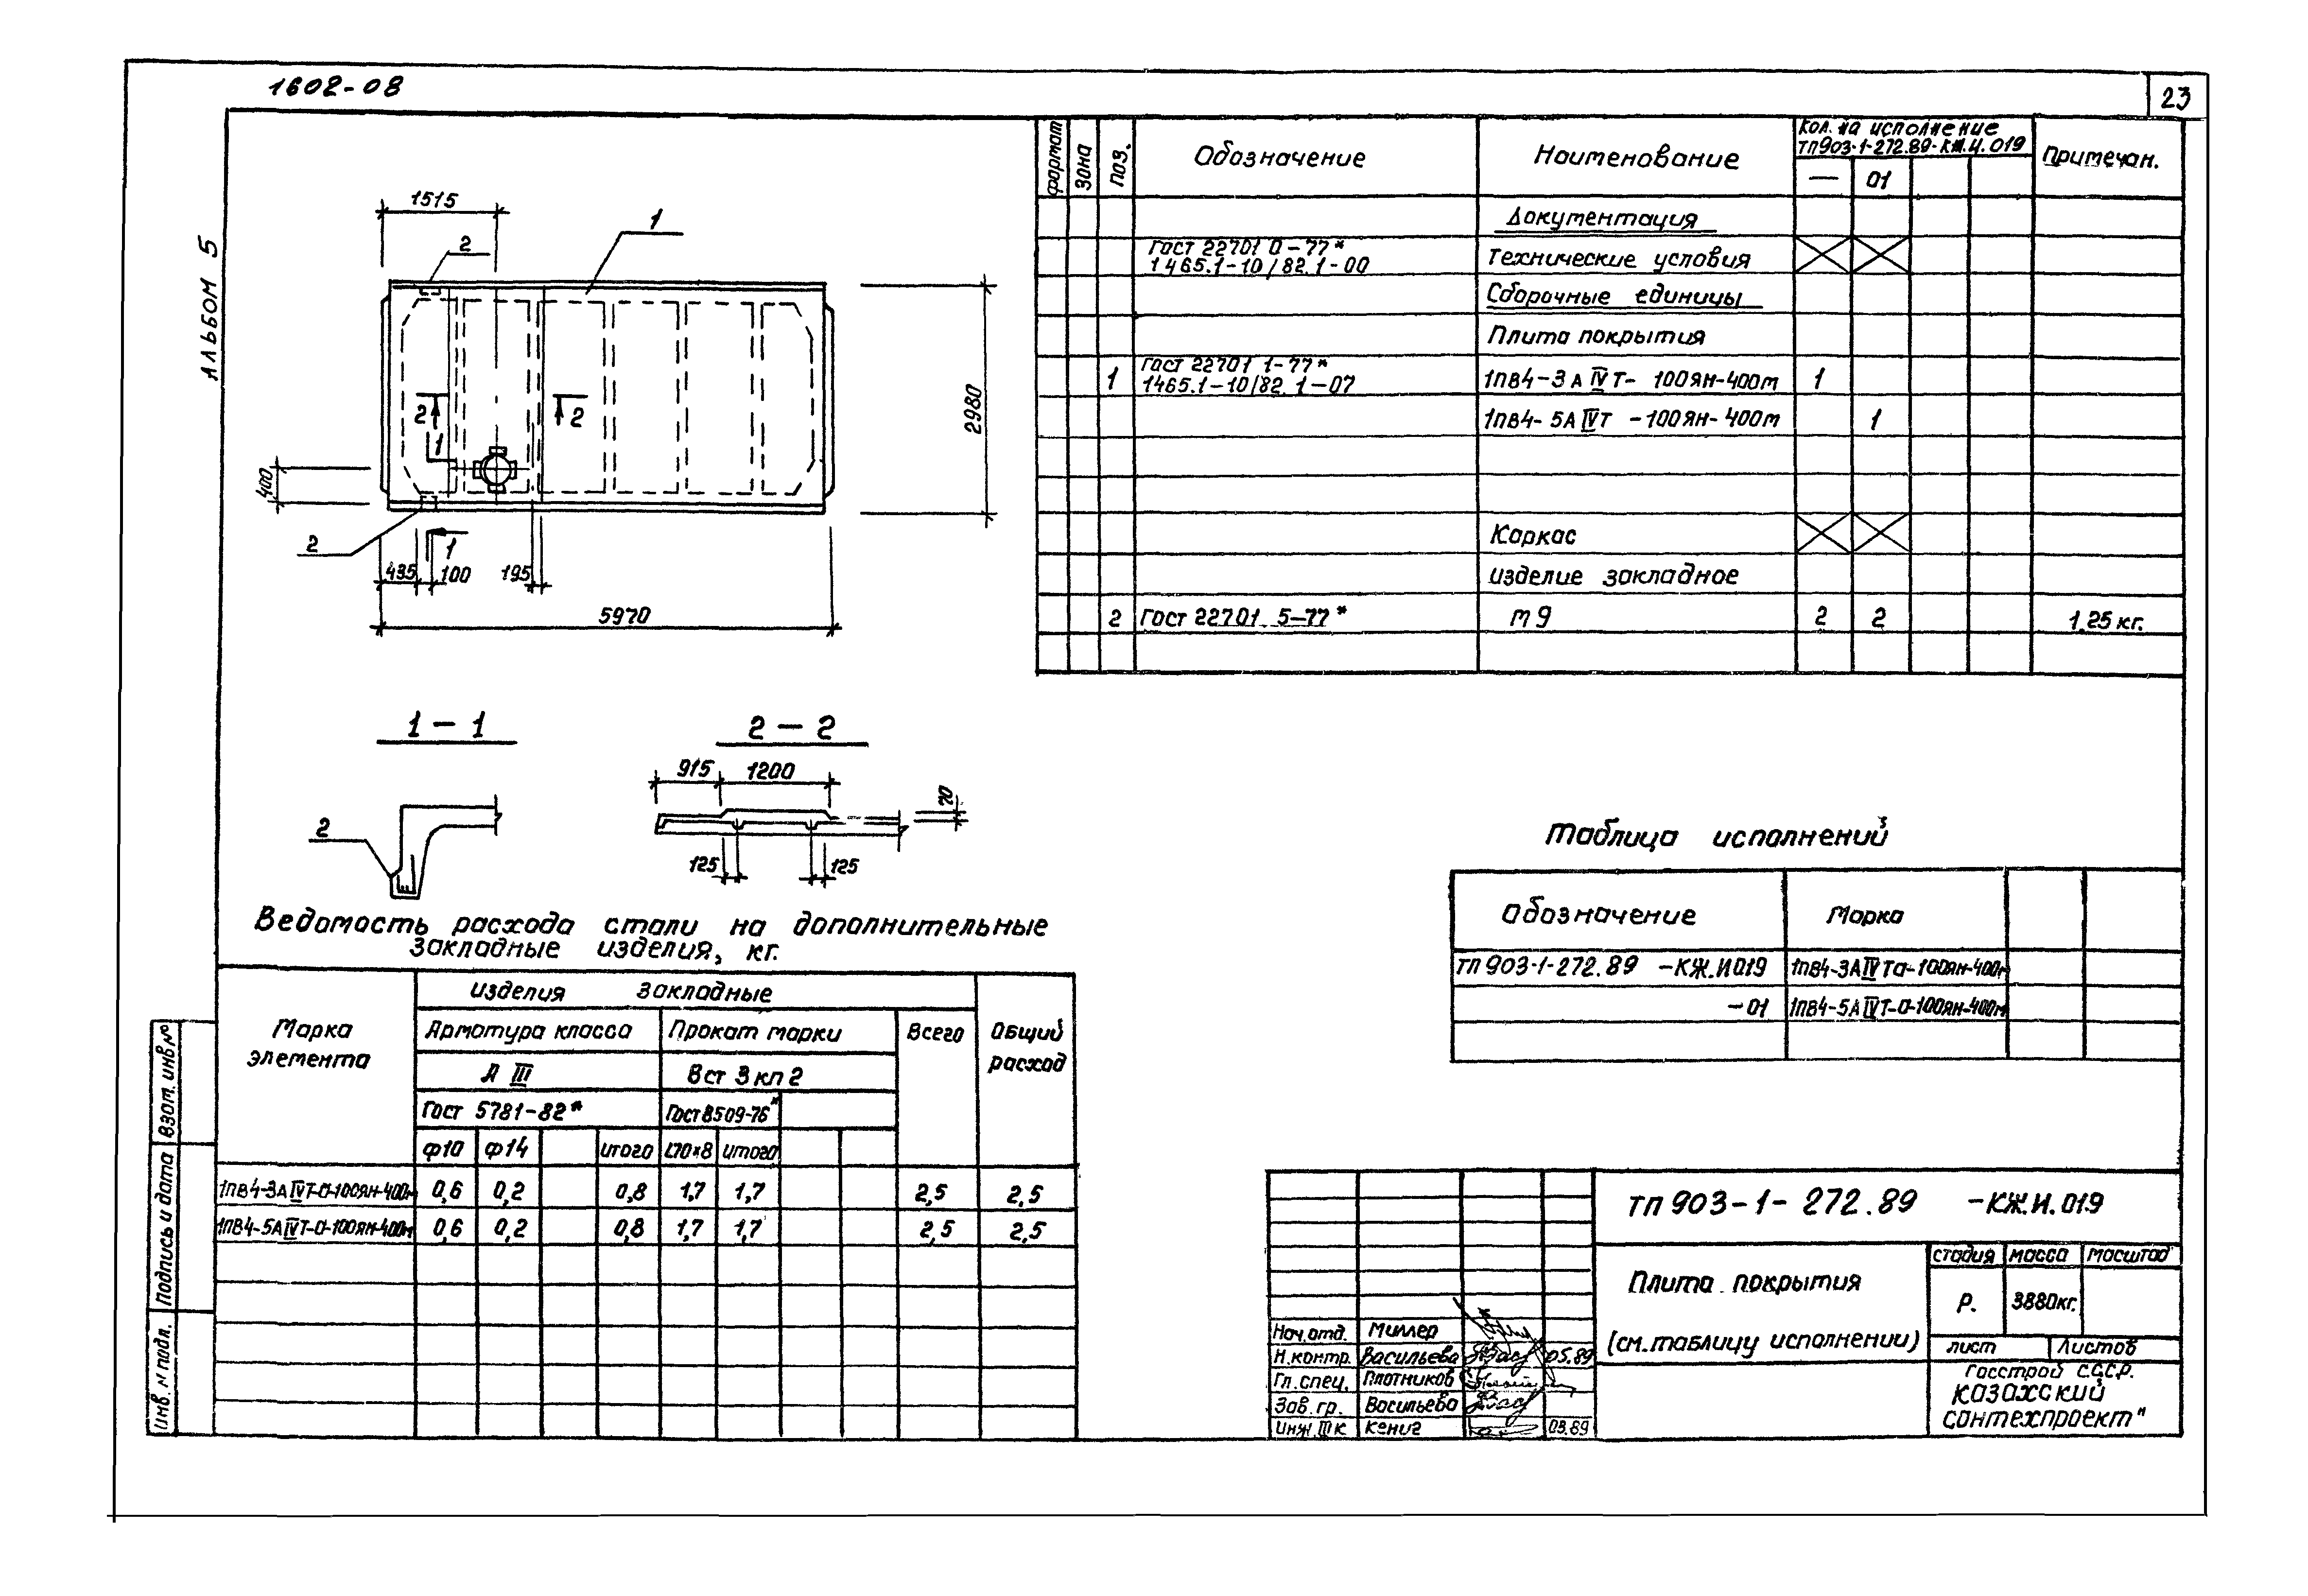 1602-08
23
АЛЬБОМ 5
1515
1
2
2 2
1
400
2980
2
1
435 100 195
5970
1 – 1
2 – 2
2
915 1200
70
125 125
Формат Зона Поз. Обозначение Наименование Кол. на исполнение Примечан.
ТП903-1-272.89-КЖ.И.019
— 01
Документация
Гост 22701 0-77*
1465.1-10/82.1-00 Технические условия
Сборочные единицы
Плита покрытия
Гост 22701 1-77*
1 1465.1-10/82.1-07 1ПВ4-3АIVТ-100ЯН-400м 1
1ПВ4-5АIVТ-100ЯН-400м 1
Каркас
Изделие закладное
2 Гост 22701.5-77* м9 2 2 1.25 кг.
Таблица исполнений
Обозначение Марка
ТП 903-1-272.89 -КЖ.И019 1ПВ4-3АIVТа-100ЯН-400м
-01 1ПВ4-5АIVТ-а-100ЯН-400м
Ведомость расхода стали на дополнительные
закладные изделия, кг.
Марка элемента
Изделия закладные
Арматура класса Прокат марки Всего Общий расход
А III Вст 3 кп 2
Гост 5781-82* Гост 8509-76*
ф10 ф14 итого L70×8 итого
1ПВ4-3АIVТ-а-100ЯН-400м 0,6 0,2 0,8 1,7 1,7 2,5 2,5
1ПВ4-5АIVТ-а-100ЯН-400м 0,6 0,2 0,8 1,7 1,7 2,5 2,5
Взам. инв №
Подпись и дата
Инв. № подл.
ТП 903-1-272.89 -КЖ.И.019
Плита покрытия
(см.таблицу исполнении)
стадия масса масштаб
Р. 3880кг.
лист Листов
Госстрой С.С.С.Р.
Казахский
сантехпроект"
Нач.отд. Миллер
Н.контр. Васильева 05.89
Гл.спец. Плотников
Зав.гр. Васильева
Инж.IIIк Кениг 03.89